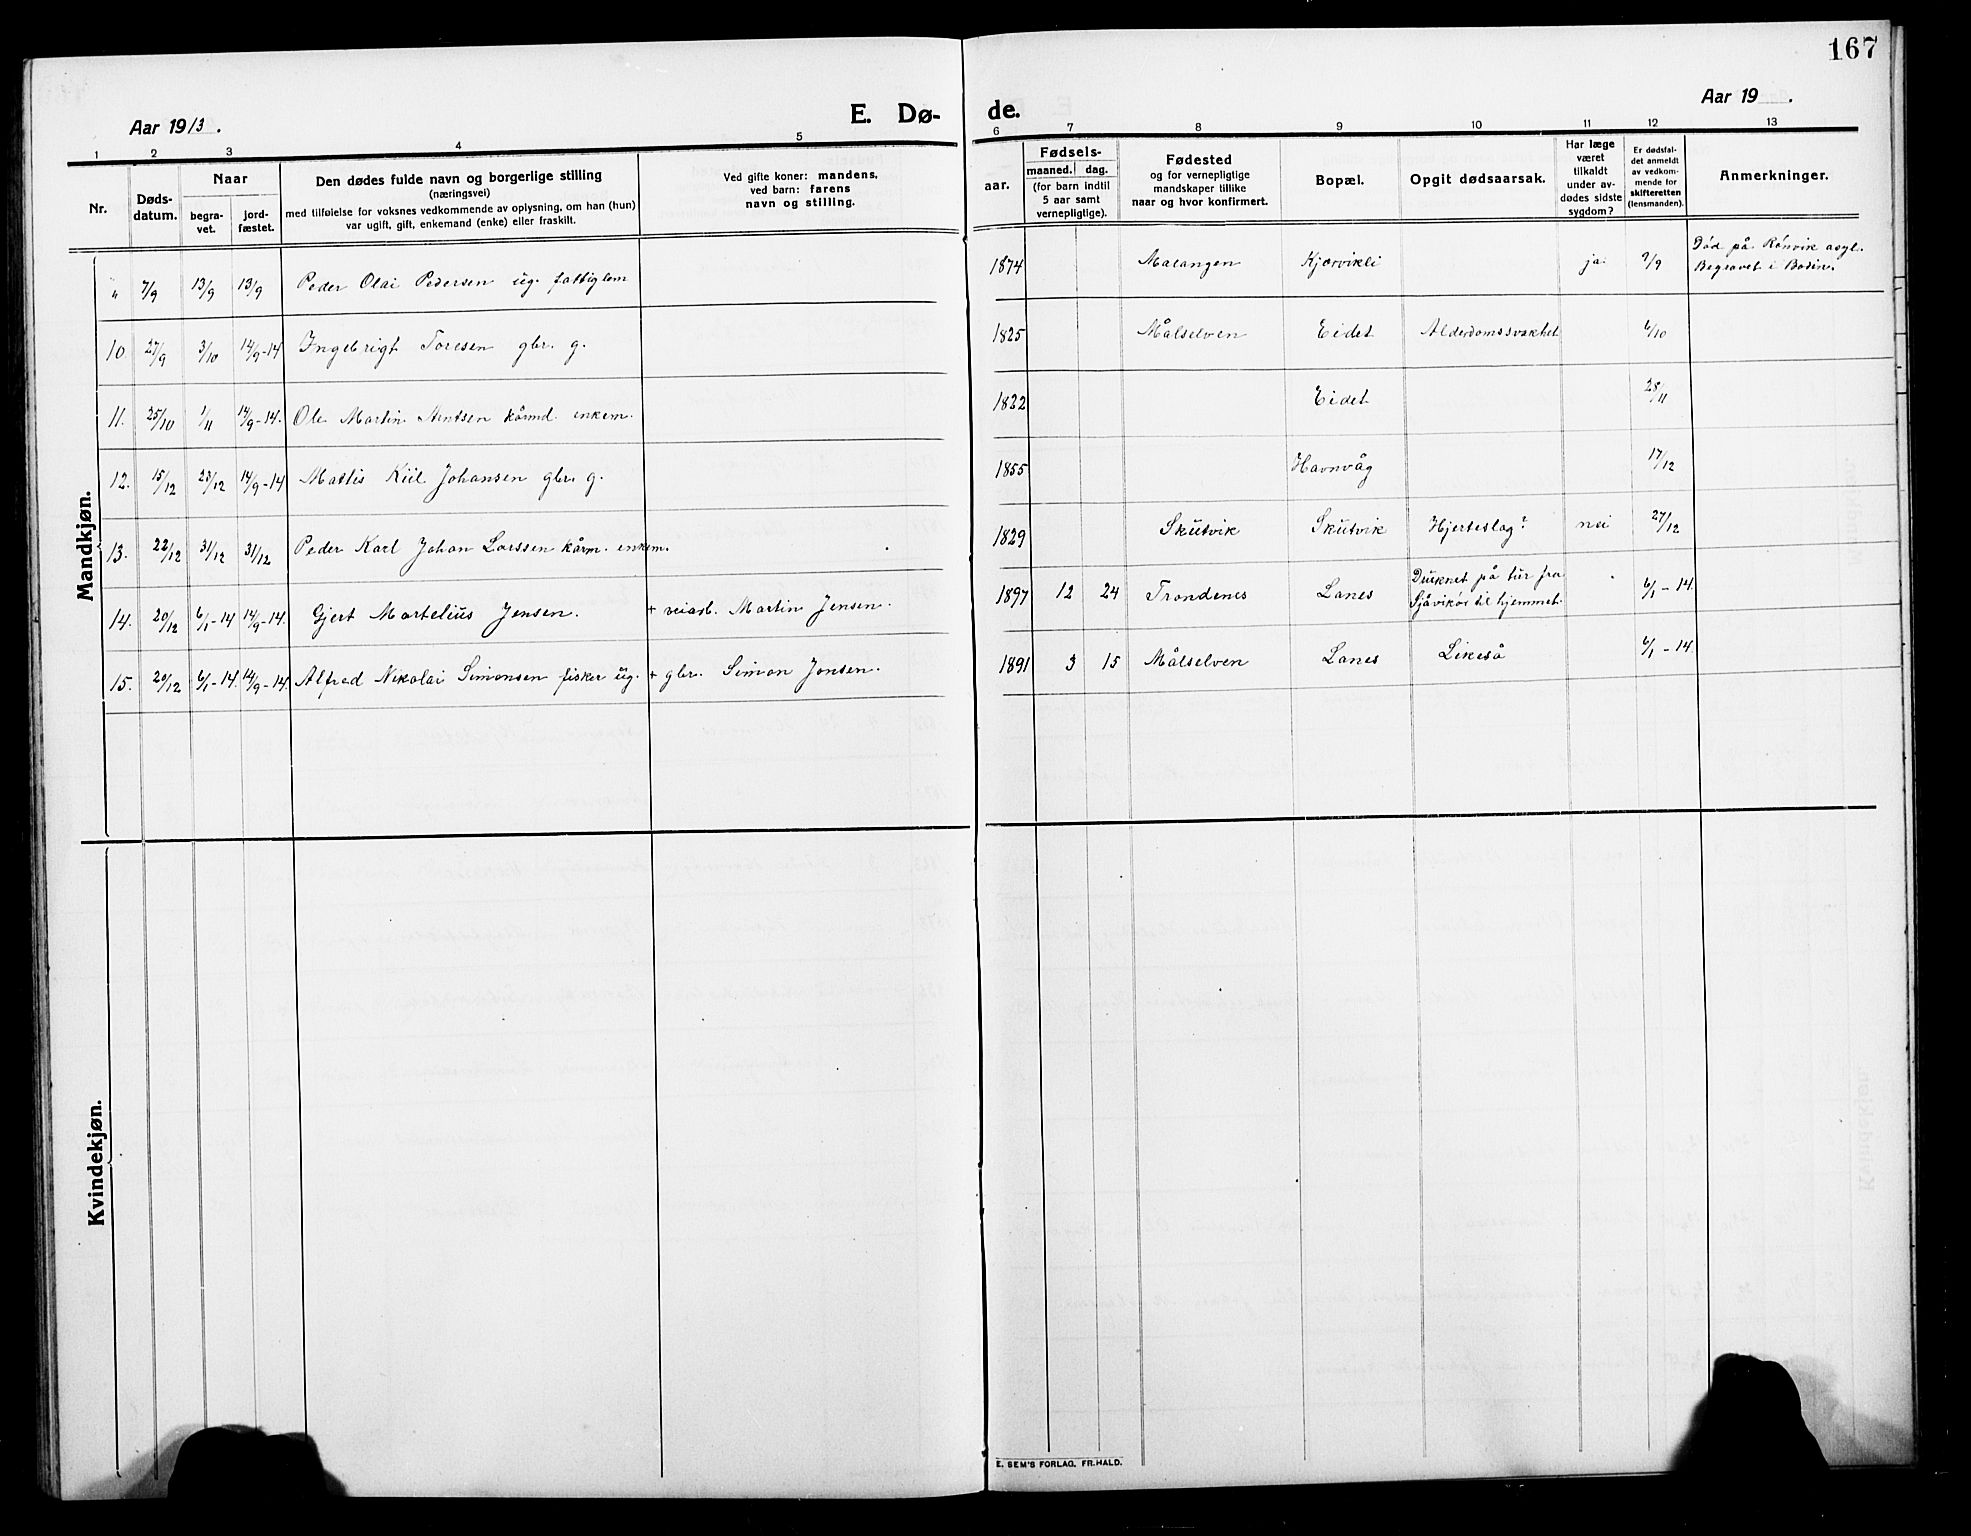 167
Aar 1913.
E. Dø-
de.
Aar 19 .
1 2 3 4 5 6 7 8 9 10 11 12 13
Nr.
Døds-
datum.
Naar
begra-
vet.
jord-
fæstet.
Den dødes fulde navn og borgerlige stilling
(næringsvei)
med tilføielse for voksnes vedkommende av oplysning, om han (hun)
var ugift, gift, enkemand (enke) eller fraskilt.
Ved gifte koner: mandens,
ved barn: farens
navn og stilling.
aar.
Fødsels-
maaned. dag.
(for barn indtil
5 aar samt
vernepligtige).
Fødested
og for vernepligtige
mandskaper tillike
naar og hvor konfirmert.
Bopæl.
Opgit dødsaarsak.
Har læge
været
tilkaldt
under av-
dødes sidste
sygdom?
Er dødsfal-
det anmeldt
av vedkom-
mende for
skifteretten
(lensmanden).
Anmerkninger.
Mandkjøn.
" 7/9 13/9 13/9 Peder Olai Pedersen ug. fattiglem 1874 Malangen Kjærvikli ja. 9/9 Død på Rønvik asyl.
Begravet i Bodin.
10 27/9 3/10 14/9-14 Ingebrigt Toresen gbr. g. 1825 Målselven Eidet Alderdomssvakhet 6/10
11. 25/10 1/11 14/9-14. Ole Martin Arntsen kårmd. enkem. 1822 Eidet 28/11
12. 15/12 23/12 14/9-14 Mattis Kiil Johansen gbr. g. 1855 Havnvåg 17/12
13. 22/12 31/12 31/12 Peder Karl Johan Larssen kårm. enkem. 1829 Skutvik Skutvik Hjerteslag? nei 27/12
14. 20/12 6/1-14 14/9-14. Gjert Martelius Jensen. + veiarb. Martin Jensen. 1897 12 24 Trondenes Lanes Druknet på tur fra
Sjåvikør til hjemmet. 6/1-14
15. 20/12 6/1-14. 14/9-14. Alfred Nikolai Simonsen fisker ug. + gbr. Simon Jonsen. 1891 3 15 Målselven Lanes Likeså 6/1-14.
Kvindekjøn.
E. SEM'S FORLAG, FR.HALD.